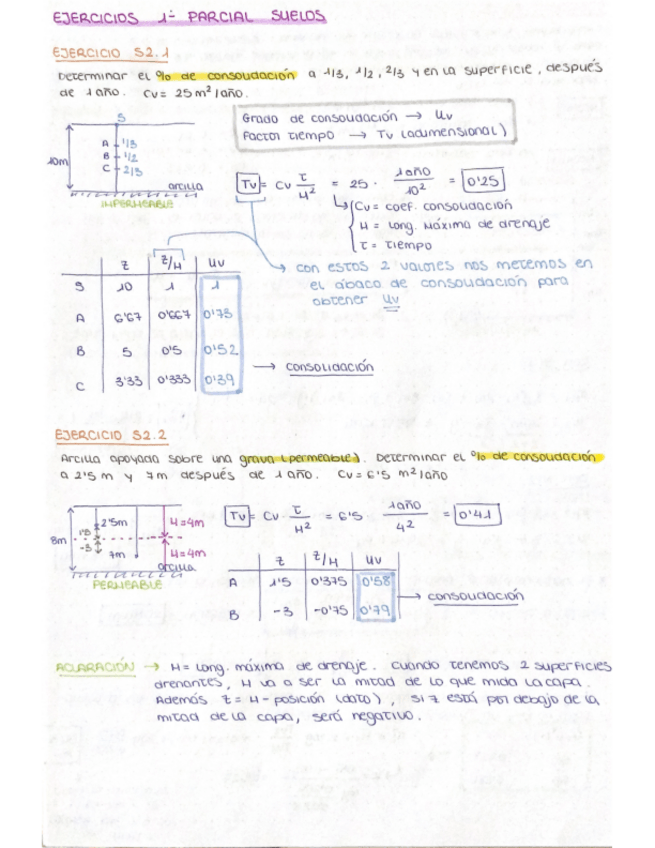 EJERCICIOS 1er PARCIAL SUELOS
EJERCICIO S2.1
Determinar el % de consolidación a 1/3, 1/2, 2/3 y en la superficie, después
de 1 año. Cv = 25 m²/año.
Grado de consolidación → Uv
Factor tiempo → Tv (adimensional)
S
A 1/3
B 1/2
C 2/3
10m
arcilla
IMPERMEABLE
Tv = Cv t/H² = 25 · 1 año/10² = 0'25
Cv = coef. consolidación
H = long. máxima de drenaje
t = tiempo
z z/H Uv
S 10 1 1
A 6'67 0'667 0'73
B 5 0'5 0'52
C 3'33 0'333 0'39
con estos 2 valores nos metemos en
el ábaco de consolidación para
obtener Uv
→ consolidación
EJERCICIO S2.2
Arcilla apoyada sobre una grava (permeable). Determinar el % de consolidación
a 2'5 m y 7m después de 1 año. Cv = 6'5 m²/año
8m
2'5m
1'5
-3
7m
H=4m
H=4m
arcilla
PERMEABLE
Tv = Cv t/H² = 6'5 1 año/4² = 0'41
z z/H Uv
A 1'5 0'375 0'58
B -3 -0'75 0'79
→ consolidación
ACLARACIÓN → H = long. máxima de drenaje. Cuando tenemos 2 superficies
drenantes, H va a ser la mitad de lo que mida la capa.
Además z = H - posición (dato), si z está por debajo de la
mitad de la capa, será negativo.